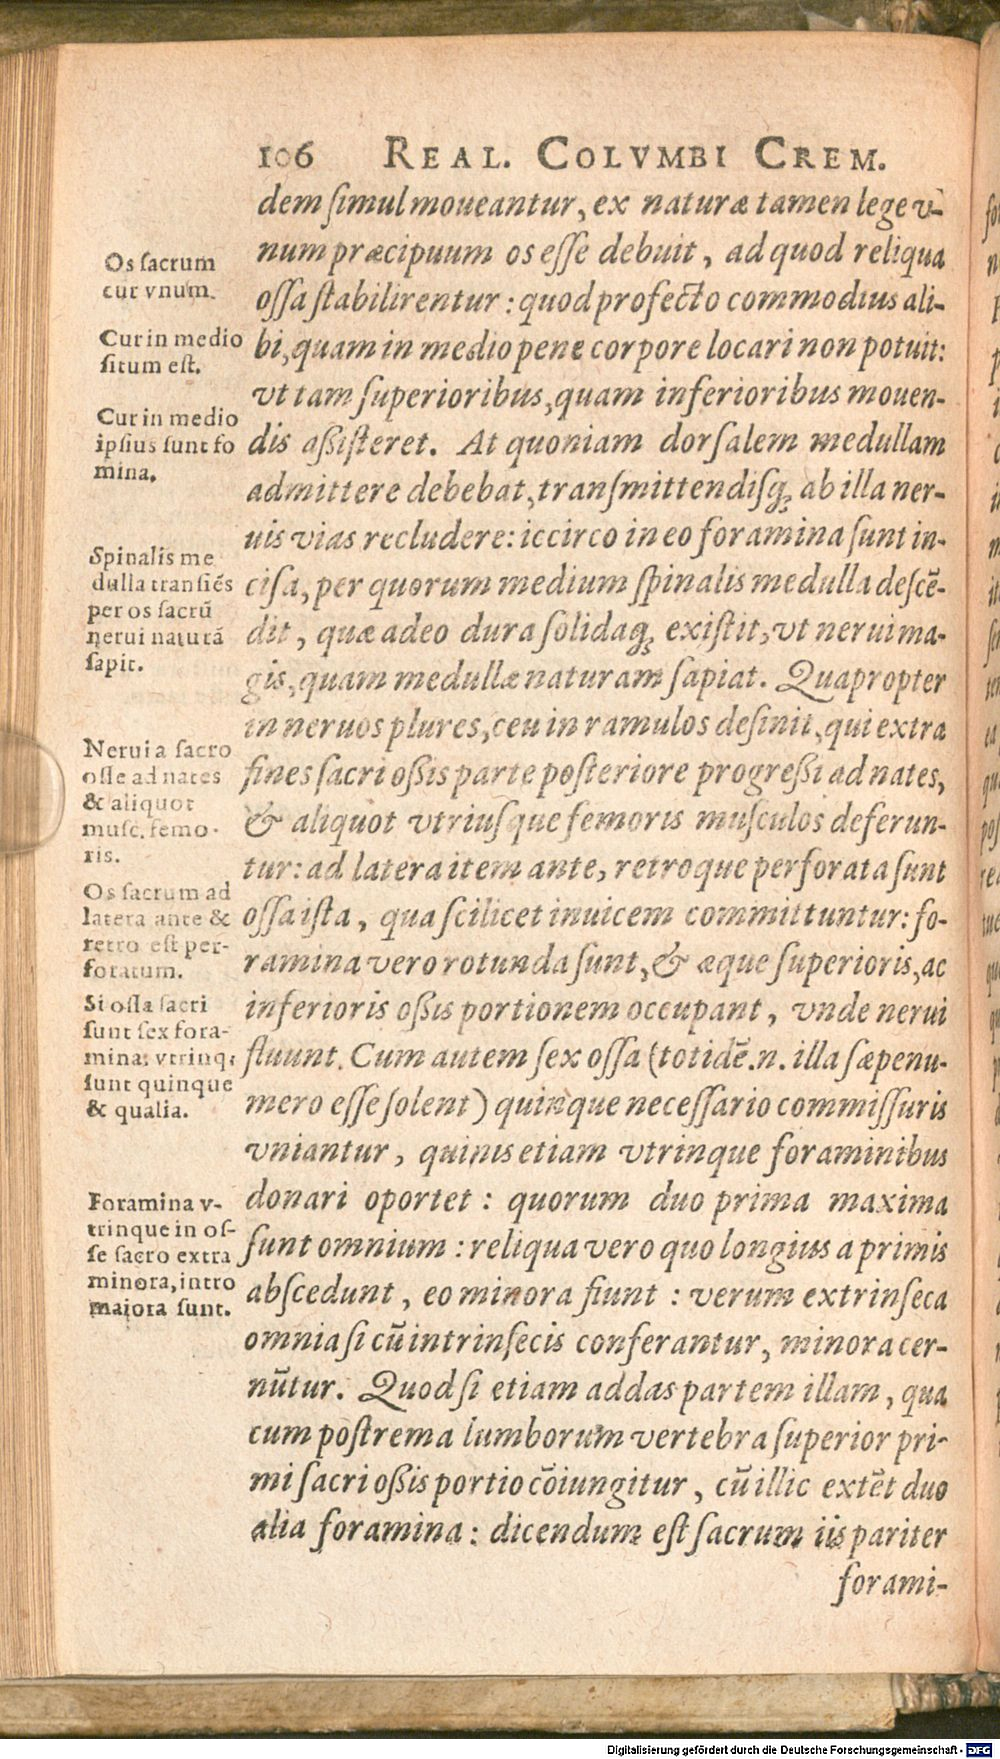 106 REAL. COLVMBI CREM.
dem simul moueantur, ex naturæ tamen lege v-
num præcipuum os esse debuit, ad quod reliqua
ossa stabilirentur: quod profecto commodius ali-
bi, quam in medio pene corpore locari non potuit:
vt tam superioribus, quam inferioribus mouen-
dis aßisteret. At quoniam dorsalem medullam
admittere debebat, transmittendisq; ab illa ner-
uis vias recludere: iccirco in eo foramina sunt in-
cisa, per quorum medium spinalis medulla descē-
dit, quæ adeo dura solidaq; existit, vt nerui ma-
gis, quam medullæ naturam sapiat. Quapropter
in neruos plures, ceu in ramulos desinit, qui extra
fines sacri oßis parte posteriore progreßi ad nates,
& aliquot vtriusque femoris musculos deferun-
tur: ad latera item ante, retroque perforata sunt
ossa ista, qua scilicet inuicem committuntur: fo-
ramina vero rotunda sunt, & æque superioris, ac
inferioris oßis portionem occupant, vnde nerui
fluunt. Cum autem sex ossa (totidē .n. illa sæpenu-
mero esse solent) quinque necessario commissuris
vniantur, quinis etiam vtrinque foraminibus
donari oportet: quorum duo prima maxima
sunt omnium: reliqua vero quo longius a primis
abscedunt, eo minora fiunt: verum extrinseca
omnia si cū intrinsecis conferantur, minora cer-
nūtur. Quod si etiam addas partem illam, qua
cum postrema lumborum vertebra superior pri-
mi sacri oßis portio cōiungitur, cū illic extēt duo
alia foramina: dicendum est sacrum iis pariter
forami-
Os sacrum
cur vnum.
Cur in medio
situm est.
Cur in medio
ipsius sunt fo
mina.
Spinalis me
dulla transiēs
per os sacrū
nerui naturā
sapit.
Nerui a sacro
osse ad nates
& aliquot
musc. femo-
ris.
Os sacrum ad
latera ante &
retro est per-
foratum.
Si ossa sacri
sunt sex fora-
mina: vtrinq;
sunt quinque
& qualia.
Foramina v-
trinque in os-
se sacro extra
minora, intro
maiora sunt.
Digitalisierung gefördert durch die Deutsche Forschungsgemeinschaft - DFG